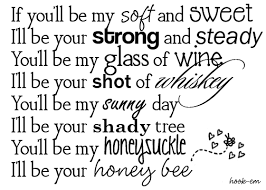 If you'll be my soft and sweet
I'll be your strong and steady
You'll be my glass of wine
I'll be your shot of whiskey
You'll be my sunny day
I'll be your shady tree
You'll be my honeysuckle
I'll be your honey bee
hook-em